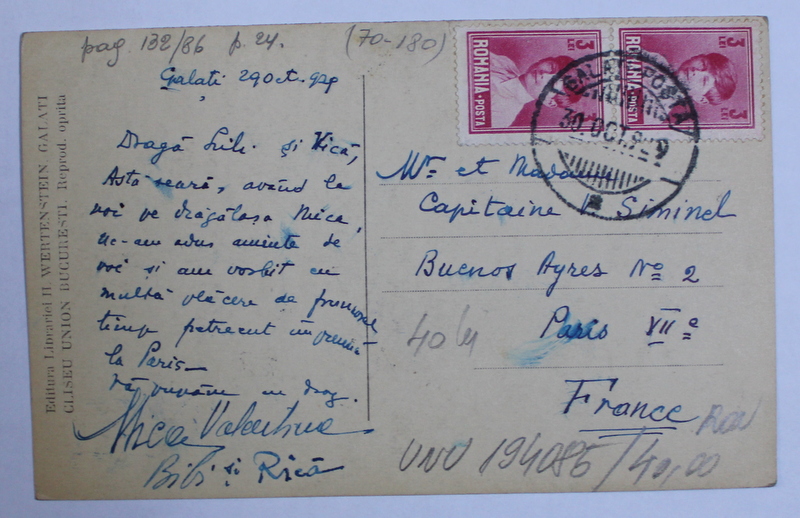 pag. 132/86 p. 24.
(70-180)
Galati 29 Oct. 929
Dragă Lili și Nică,
Astă seară, având la
noi pe drăgălașa Mica,
ne-am adus aminte de
voi și am vorbit cu
multă plăcere de frumosul
timp petrecut în
la Paris—
Vă pupăm cu drag.
Mica Valentina
Bibi și Rică
Editura Librariei H. WERTENSTEIN GALATI
CLISEU UNION BUCURESTI. Reprod. oprita
ROMANIA·POSTA
3 LEI
ROMANIA·POSTA
3 LEI
GALATI·POSTA
30 OCT. 929
Mr et Madame
Capitaine V. Siminel
Buenos Ayres No 2
Paris VII e
France
40 lei
UNU 194085/40,00
RON